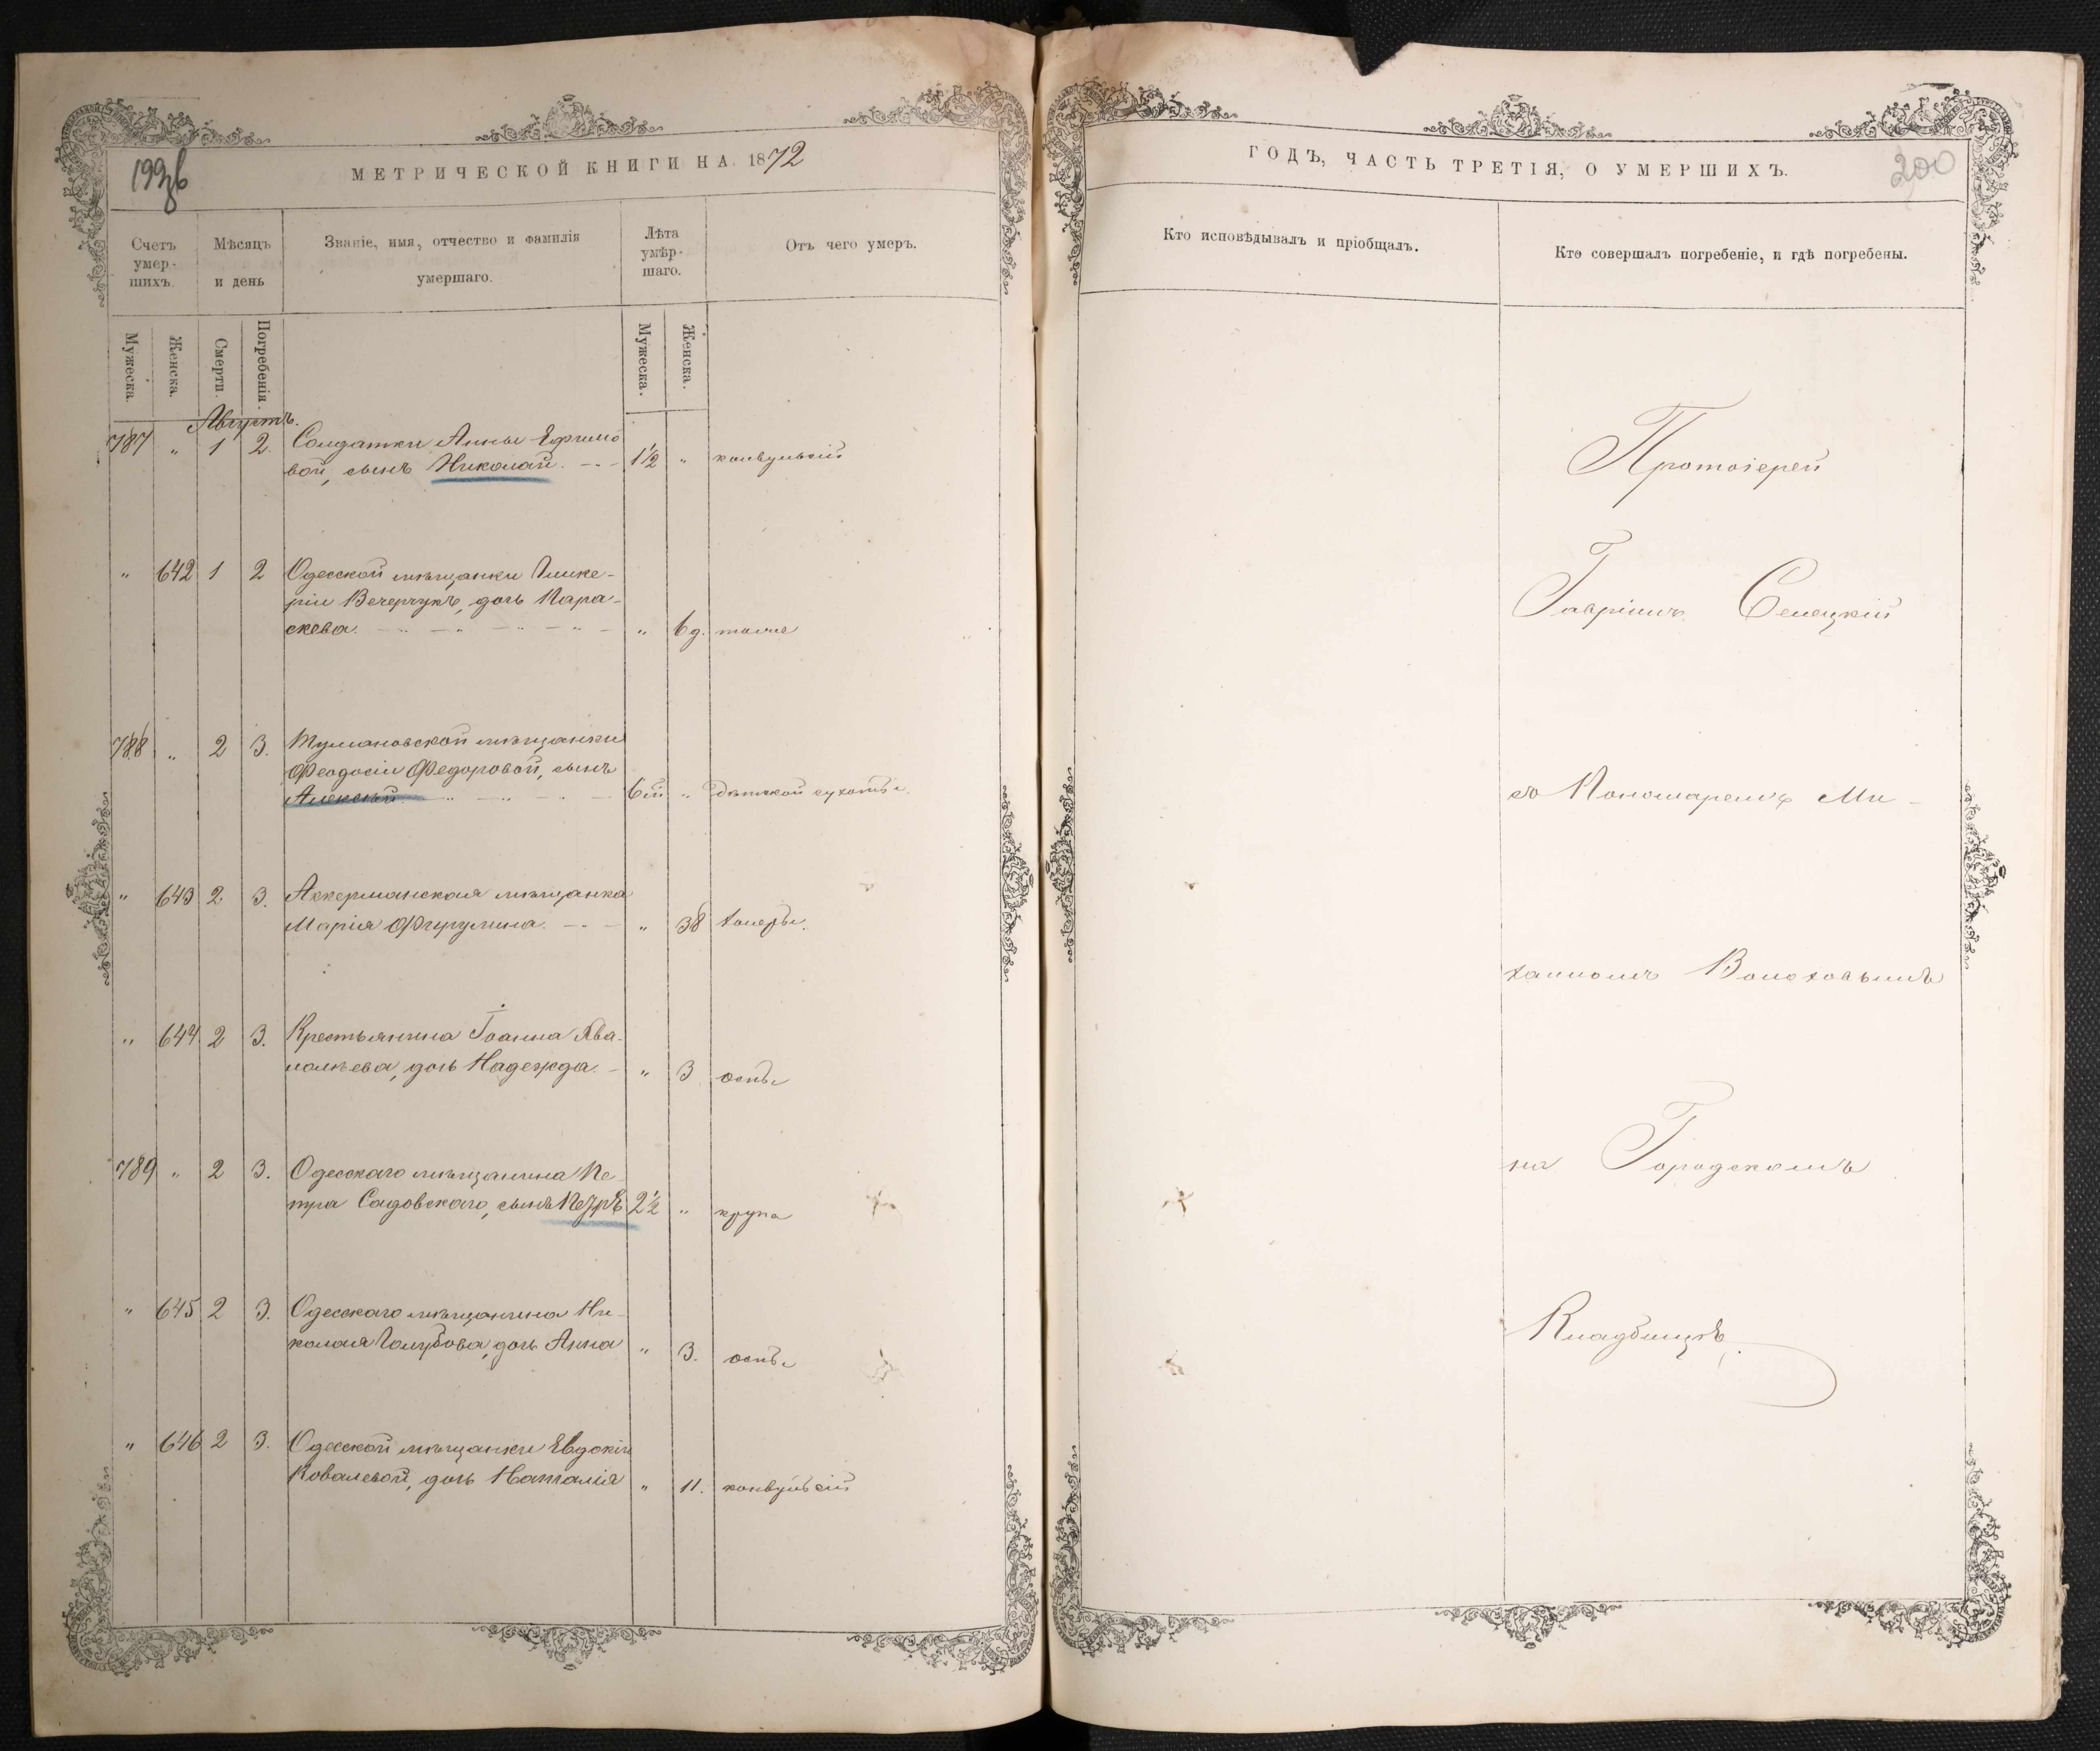 МЕТРИЧЕСКОЙ КНИГИ НА 1872
Счетъ умершихъ.
Мѣсяцъ и день
Званіе, имя, отчество и фамилія умершаго.
Лѣта умѣршаго.
Отъ чего умеръ.
Мужеска.
Женска.
Смерти.
Погребенія.
Мужеска.
Женска.
Августъ.
787 " 1 2. Солдатки Анны Ефимо
вой, сынъ Николай. 1½ " конвульсій
" 642 1 2 Одесской мѣщанки Глике-
ріи Вечерчукъ, дочь Пара-
скева. " 6 д. тоже
788 " 2 3. мѣщанки
Феодосіи Федоровой, сынъ
Алексѣй " дѣтской сухоты.
" 643 2 3. Аккерманская мѣщанка
Марія " 38 холеры.
" 644 2 3. Крестьянина Іоанна
дочь Надежда. " 3 оспы
789 " 2 3. Одесскаго мѣщанина Пе-
тра Садовскаго, сынъ Петръ 2½ " крупа
" 645 2 3. Одесскаго мѣщанина Ни-
колая Голубова, дочь Анна " 3. оспы
" 646 2 3. Одесской мѣщанки Евдокіи
Ковалевой, дочь Наталія " 11. конвульсій
ГОДЪ, ЧАСТЬ ТРЕТІЯ, О УМЕРШИХЪ.
200
Кто исповѣдывалъ и пріобщалъ.
Кто совершалъ погребеніе, и гдѣ погребены.
Протоіерей
Гавріилъ Селецкій
съ Пономаремъ Ми-
хаиломъ Волоховымъ
на Городскомъ
Кладбищѣ.